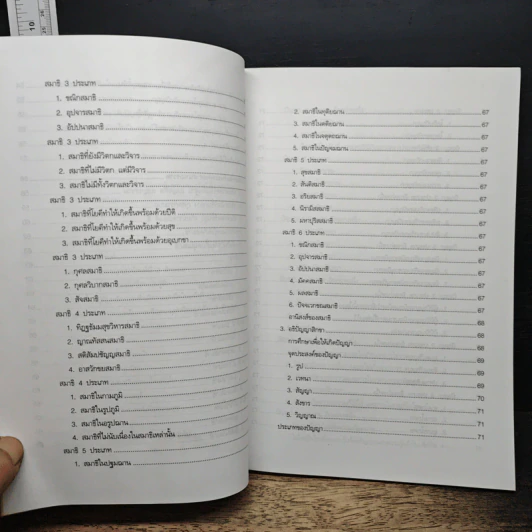 10
สมาธิ 3 ประเภท
1. ขณิกสมาธิ
2. อุปจารสมาธิ
3. อัปปนาสมาธิ
สมาธิ 3 ประเภท
1. สมาธิที่ยังมีวิตกและวิจาร
2. สมาธิที่ไม่มีวิตก แต่มีวิจาร
3. สมาธิไม่มีทั้งวิตกและวิจาร
สมาธิ 3 ประเภท
1. สมาธิที่โยคีทำให้เกิดขึ้นพร้อมด้วยปีติ
2. สมาธิที่โยคีทำให้เกิดขึ้นพร้อมด้วยสุข
3. สมาธิที่โยคีทำให้เกิดขึ้นพร้อมด้วยอุเบกขา
สมาธิ 3 ประเภท
1. กุศลสมาธิ
2. กุศลวิบากสมาธิ
3. สัจสมาธิ
สมาธิ 4 ประเภท
1. ทิฏฐธัมมสุขวิหารสมาธิ
2. ญาณทัสสนสมาธิ
3. สติสัมปชัญญสมาธิ
4. อาสวักขยสมาธิ
สมาธิ 4 ประเภท
1. สมาธิในกามภูมิ
2. สมาธิในรูปภูมิ
3. สมาธิในอรูปฌาน
4. สมาธิที่ไม่นับเนื่องในสมาธิเหล่านั้น
สมาธิ 5 ประเภท
1. สมาธิในปฐมฌาน
2. สมาธิในทุติยฌาน 67
3. สมาธิในตติยฌาน 67
4. สมาธิในจตุตถฌาน 67
5. สมาธิในปัญจมฌาน 67
สมาธิ 5 ประเภท 67
1. สุขสมาธิ 67
2. สันติสมาธิ 67
3. อริยสมาธิ 67
4. นิรามิสสมาธิ 67
5. มหาปุริสสมาธิ 67
สมาธิ 6 ประเภท 67
1. ขณิกสมาธิ 67
2. อุปจารสมาธิ 67
3. อัปปนาสมาธิ 67
4. มัคคสมาธิ 67
5. ผลสมาธิ 67
6. ปัจจเวกขณสมาธิ 67
อานิสงส์ของสมาธิ 68
3. อธิปัญญาสิกขา 68
การศึกษาเพื่อให้เกิดปัญญา 69
จุดประสงค์ของปัญญา 69
1. รูป 69
2. เวทนา 69
3. สัญญา 70
4. สังขาร 71
5. วิญญาณ 71
ประเภทของปัญญา 71